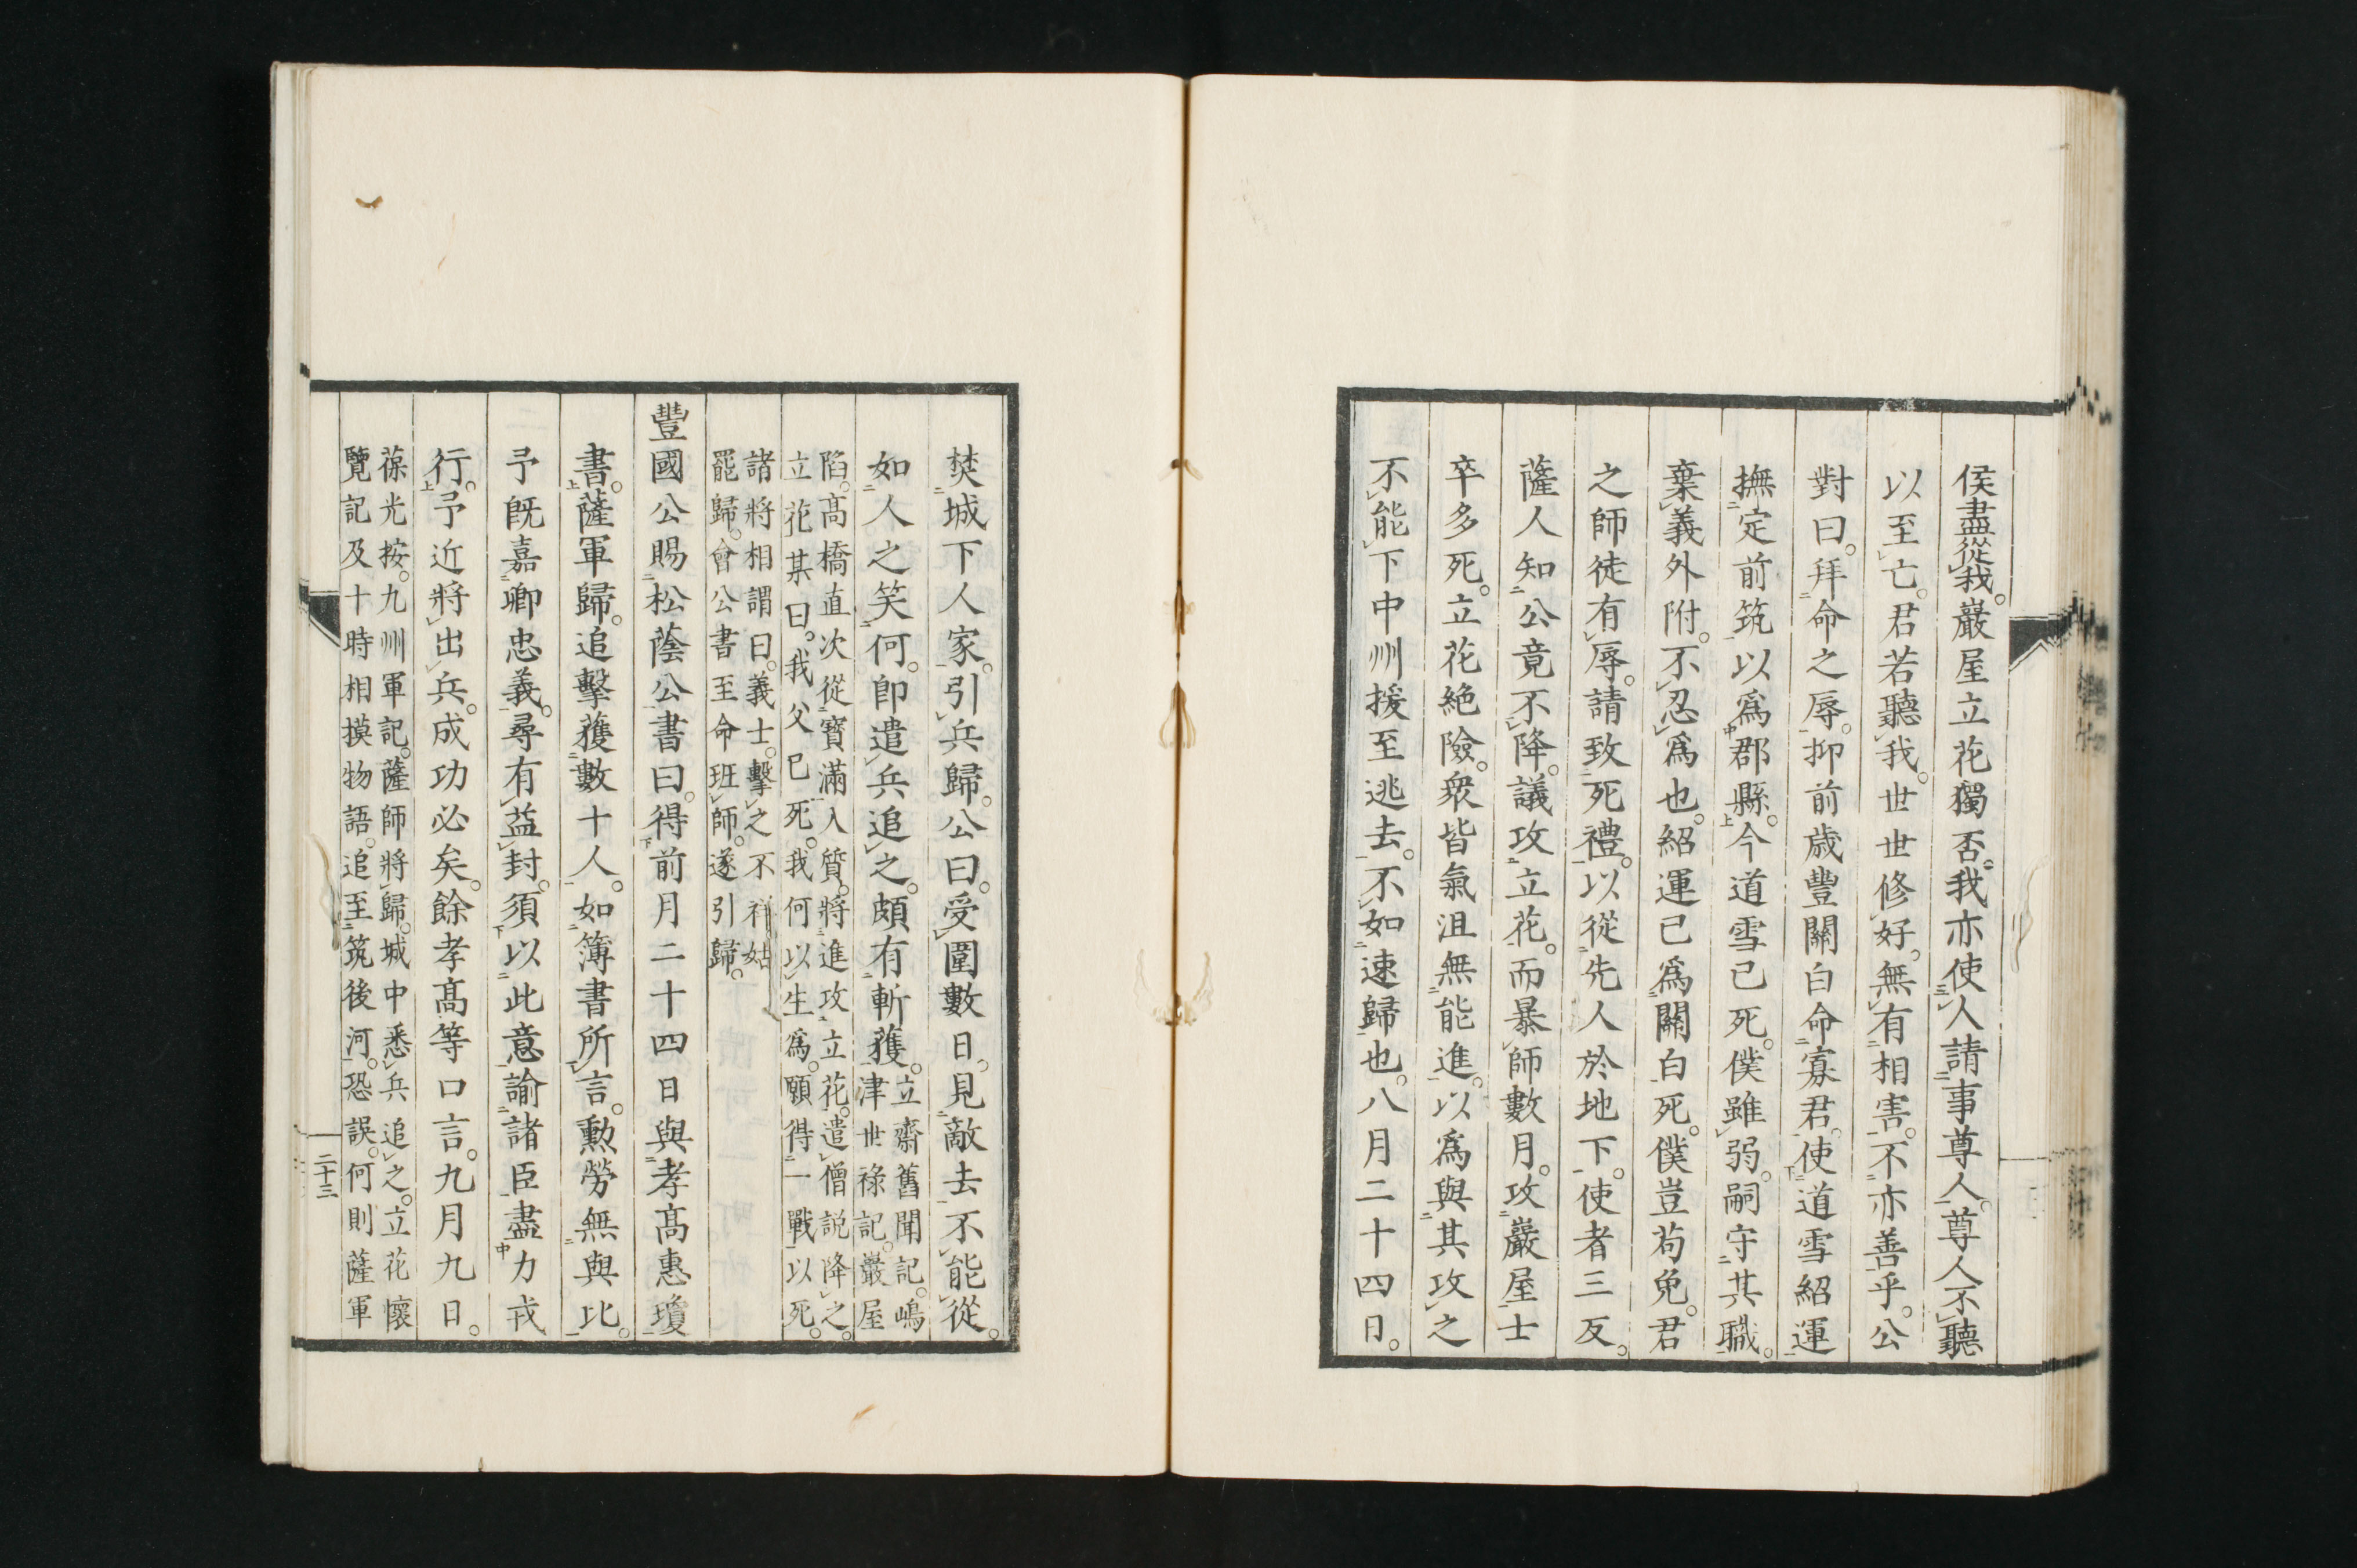 侯盡從我。巖屋立花獨否。我亦使人請事尊人。尊人不聽
以至亡。君若聽我。世世修好。無有相害。不亦善乎。公
對曰。拜命之辱。抑前歲豐關白命寡君。使道雪紹運
撫定前筑以爲郡縣。今道雪已死。僕雖弱。嗣守其職。
棄義外附。不忍爲也。紹運已爲關白死。僕豈苟免。君
之師徒有辱。請致死禮。以從先人於地下。使者三反。
薩人知公竟不降。議攻立花。而暴師數月。攻巖屋士
卒多死。立花絶險。衆皆氣沮無能進。以爲與其攻之
不能下中州援至逃去。不如速歸也。八月二十四日。
焚城下人家。引兵歸。公曰。受圍數日。見敵去不能從。
如人之笑何。卽遣兵追之。頗有斬獲。立齋舊聞記。嶋
津世祿記。巖屋
陷。高橋直次從寶滿入質。將進攻立花。遣僧説降之。
立花某曰。我父已死。我何以生爲。願得一戰以死。
諸將相謂曰。義士。擊之不祥姑
罷歸。會公書至命班師。遂引歸。
豐國公賜松蔭公書曰。得前月二十四日與孝高惠瓊
書。薩軍歸。追擊獲數十人。如簿書所言。勲勞無與比。
予旣嘉卿忠義。尋有益封。須以此意諭諸臣盡力戎
行。予近將出兵。成功必矣。餘孝高等口言。九月九日。
葆光按。九州軍記。薩師將歸。城中悉兵追之。立花懷
覽記及十時相摸物語。追至筑後河。恐誤。何則薩軍
二十三